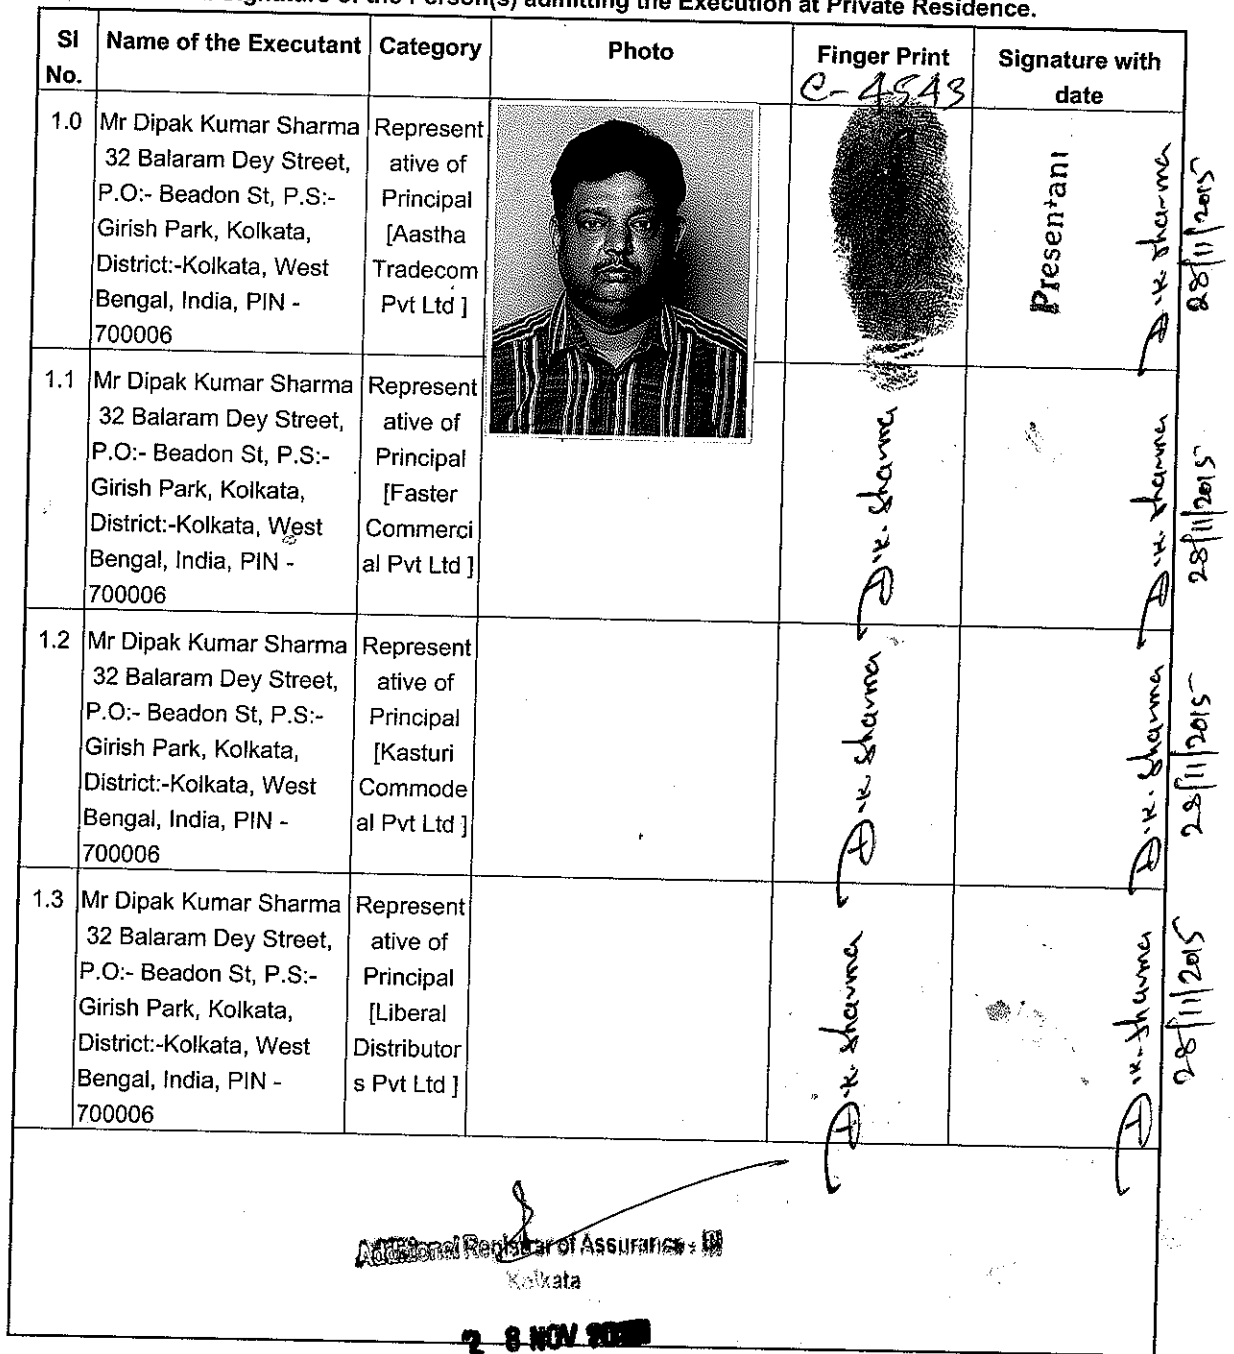 Signature of the Person(s) admitting the Execution at Private Residence.
Sl No. Name of the Executant Category Photo Finger Print Signature with date
C-4543
1.0
Mr Dipak Kumar Sharma
32 Balaram Dey Street,
P.O:- Beadon St, P.S:-
Girish Park, Kolkata,
District:-Kolkata, West
Bengal, India, PIN -
700006
Represent
ative of
Principal
[Aastha
Tradecom
Pvt Ltd ]
Presentant
D.K. Sharma
28/11/2015
1.1
Mr Dipak Kumar Sharma
32 Balaram Dey Street,
P.O:- Beadon St, P.S:-
Girish Park, Kolkata,
District:-Kolkata, West
Bengal, India, PIN -
700006
Represent
ative of
Principal
[Faster
Commerci
al Pvt Ltd ]
D.K. Sharma
D.K. Sharma
28/11/2015
1.2
Mr Dipak Kumar Sharma
32 Balaram Dey Street,
P.O:- Beadon St, P.S:-
Girish Park, Kolkata,
District:-Kolkata, West
Bengal, India, PIN -
700006
Represent
ative of
Principal
[Kasturi
Commode
al Pvt Ltd ]
D.K. Sharma
D.K. Sharma
28/11/2015
1.3
Mr Dipak Kumar Sharma
32 Balaram Dey Street,
P.O:- Beadon St, P.S:-
Girish Park, Kolkata,
District:-Kolkata, West
Bengal, India, PIN -
700006
Represent
ative of
Principal
[Liberal
Distributor
s Pvt Ltd ]
D.K. Sharma
D.K. Sharma
28/11/2015
Additional Registrar of Assurance - III
Kolkata
2 8 NOV